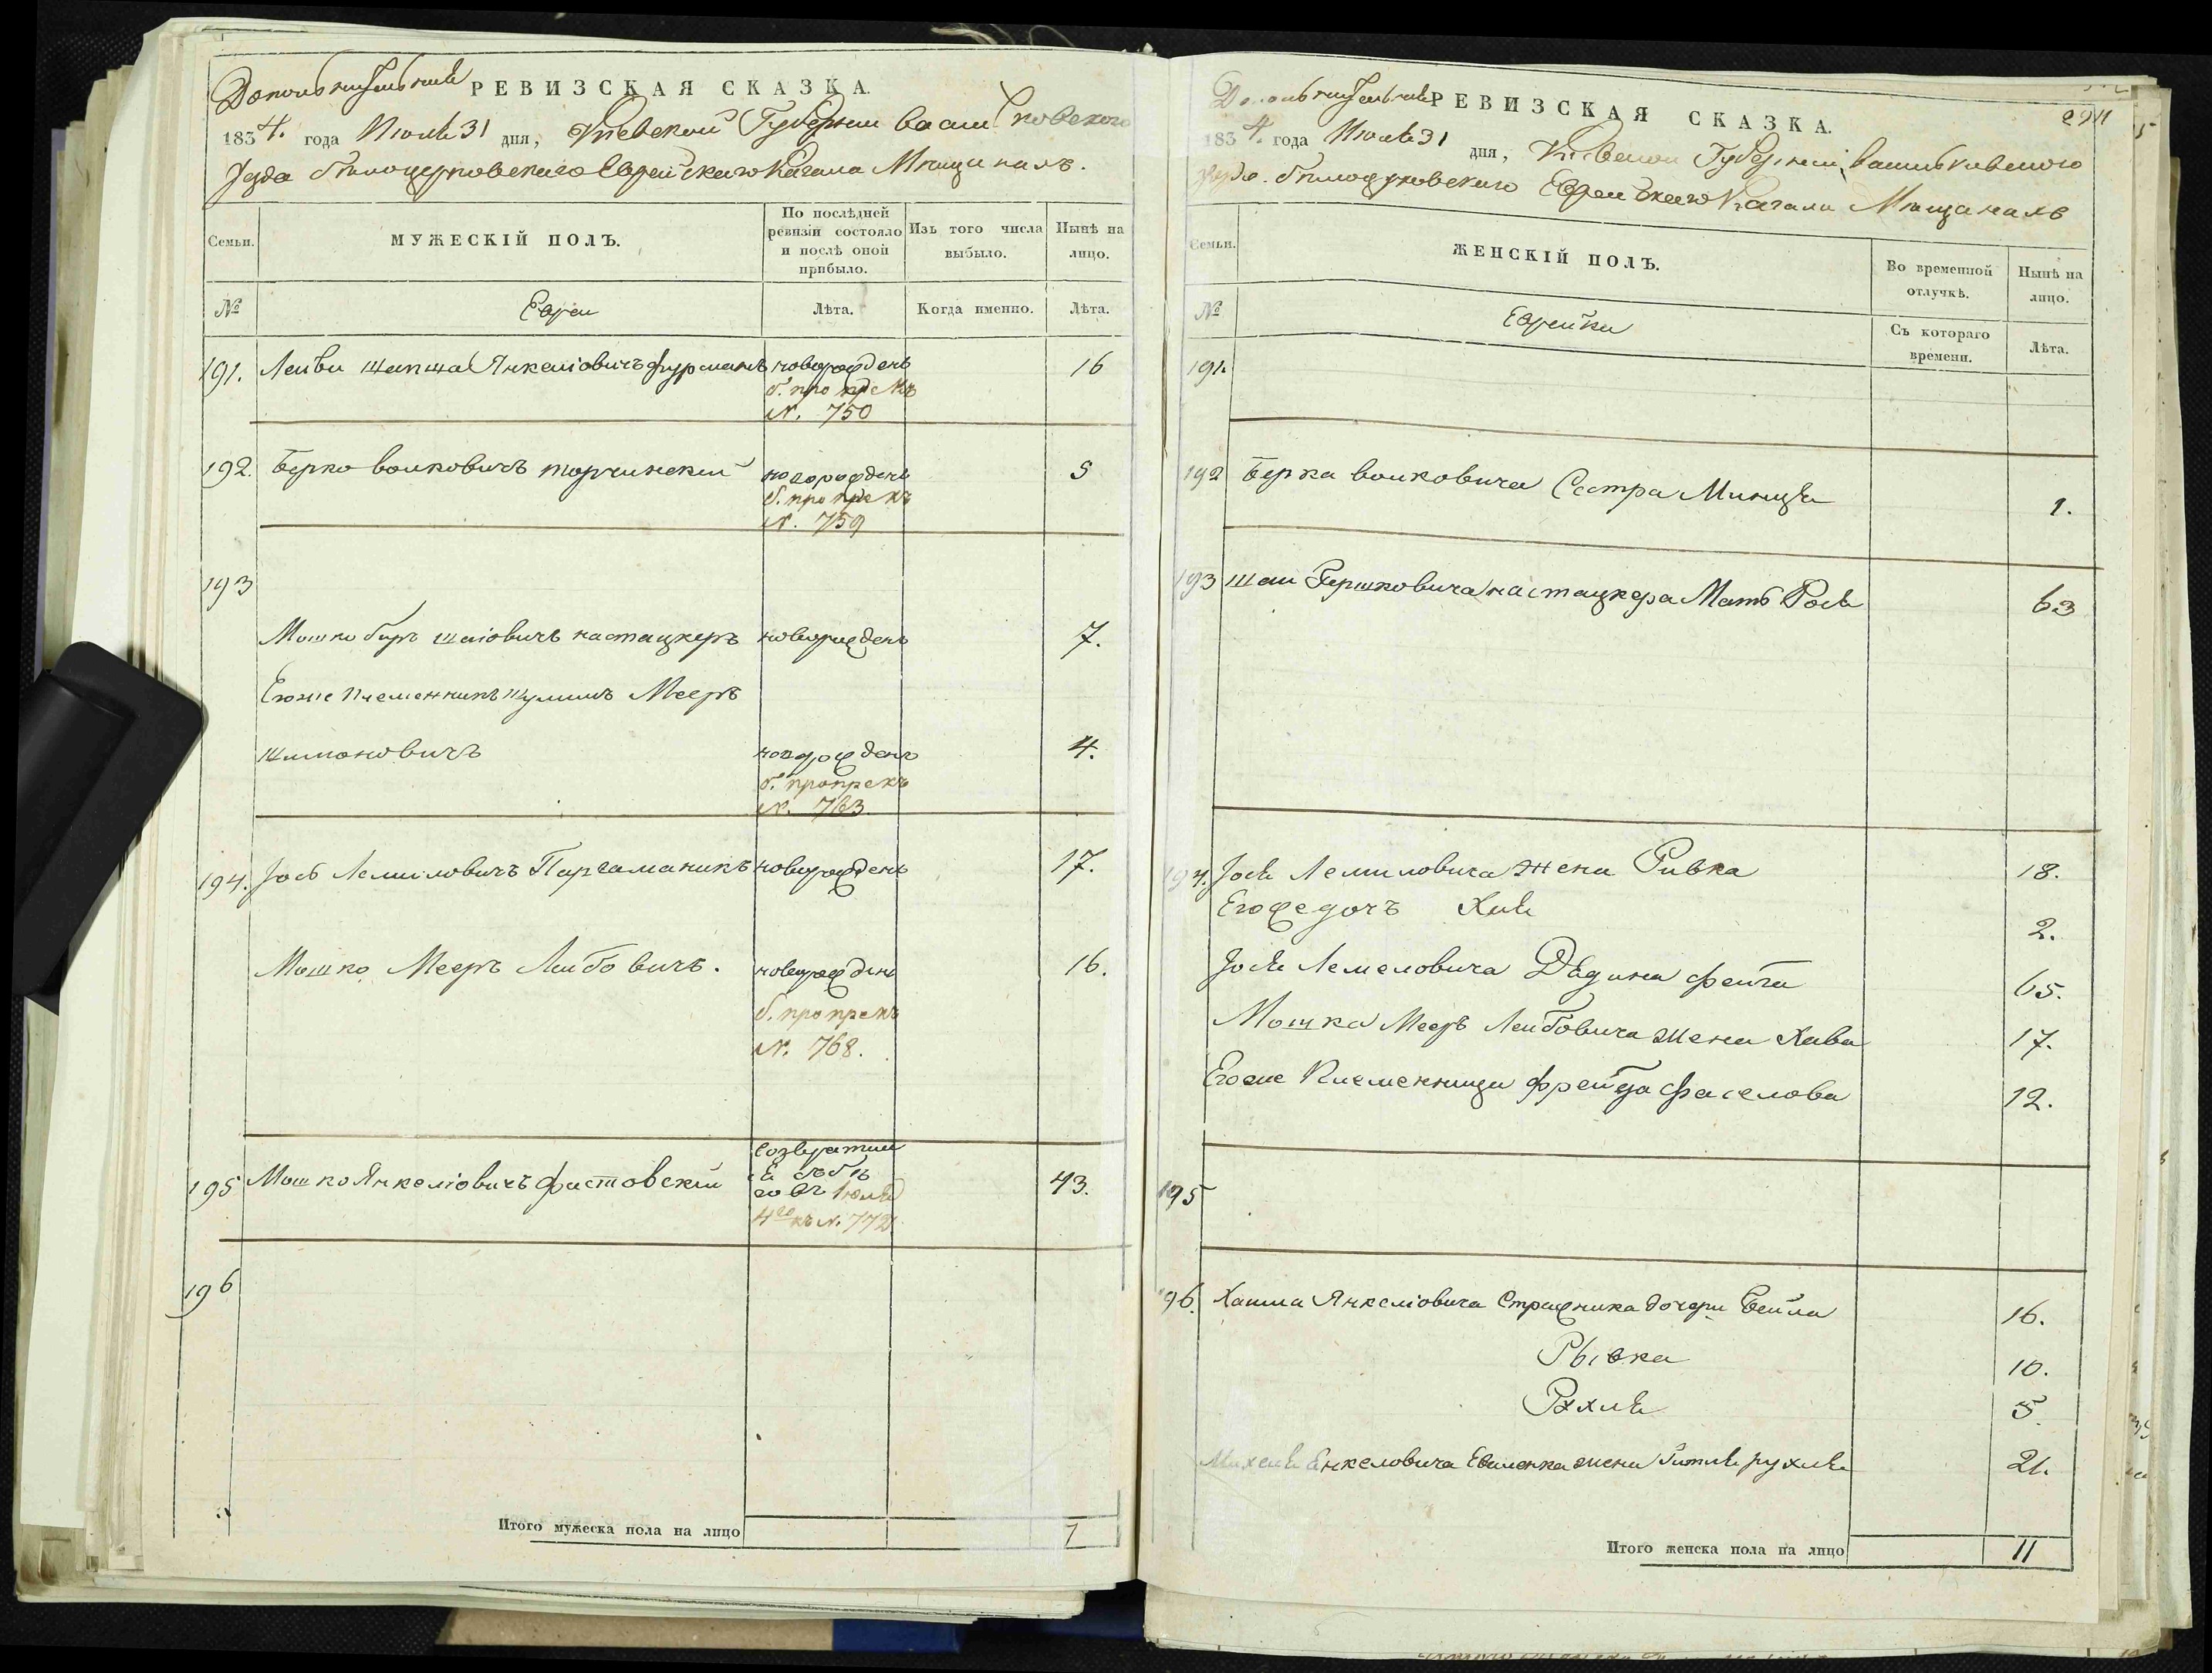 Дополнительная РЕВИЗСКАЯ СКАЗКА.
1834. года Июля 31 дня, Киевской Губернии Васильковского
Уезда Белоцерковскаго Еврейскаго Кагала Мещанахъ.
Семьи.
МУЖЕСКІЙ ПОЛЪ.
По послѣдней ревизіи состояло и послѣ оной прибыло.
Изъ того числа выбыло.
Нынѣ на лицо.
№
Евреи
Лѣта.
Когда именно.
Лѣта.
191. Лейви Шапша Янкеліовичъ Фурманъ новорожденъ 16
N. 750
192. Берко Волковичъ Торчинскій новорожденъ 5
N. 759
193
Мошко Беръ Шаіовичъ Настацкеръ новорожденъ 7.
Егоже племенникъ Шулимъ Мееръ
Шимоновичъ новорожденъ 4.
N. 763
194. Іось Лемиловичъ Паргаманикъ новорожденъ 17.
Мошко Мееръ Лейбовичъ. новорожденъ 16.
N. 768.
195 Мошко Янкеліовичъ Фастовскій 43.
къ N. 772
196
Итого мужеска пола на лицо 7
Дополнительная РЕВИЗСКАЯ СКАЗКА.
1834. года Июля 31 дня, Киевской Губерніи Васильковского
Уезда Белоцерковскаго Еврейскаго Кагала Мещанахъ
Семьи.
ЖЕНСКІЙ ПОЛЪ.
Во временной отлучкѣ.
Нынѣ на лицо.
№
Еврейки
Съ котораго времени.
Лѣта.
191.
192 Берка Волковича Сестра Миндля 1.
193 Шаи Гершковича Настацкера Мать Рося 63
194. Іося Лемиловича жена Ривка 18.
Егоже дочъ Хая 2.
Іося Лемеловича Дѣдина Фейга 65.
Мошка Мееръ Лейбовича жена Хава 17.
Егоже Племенница Фрейда 12.
195
196. Хаима Янкеліовича Стражника дочери Бейла 16.
Рывка 10.
Рухля 5.
Михеля Енкеловича жена 21.
Итого женска пола на лицо 11